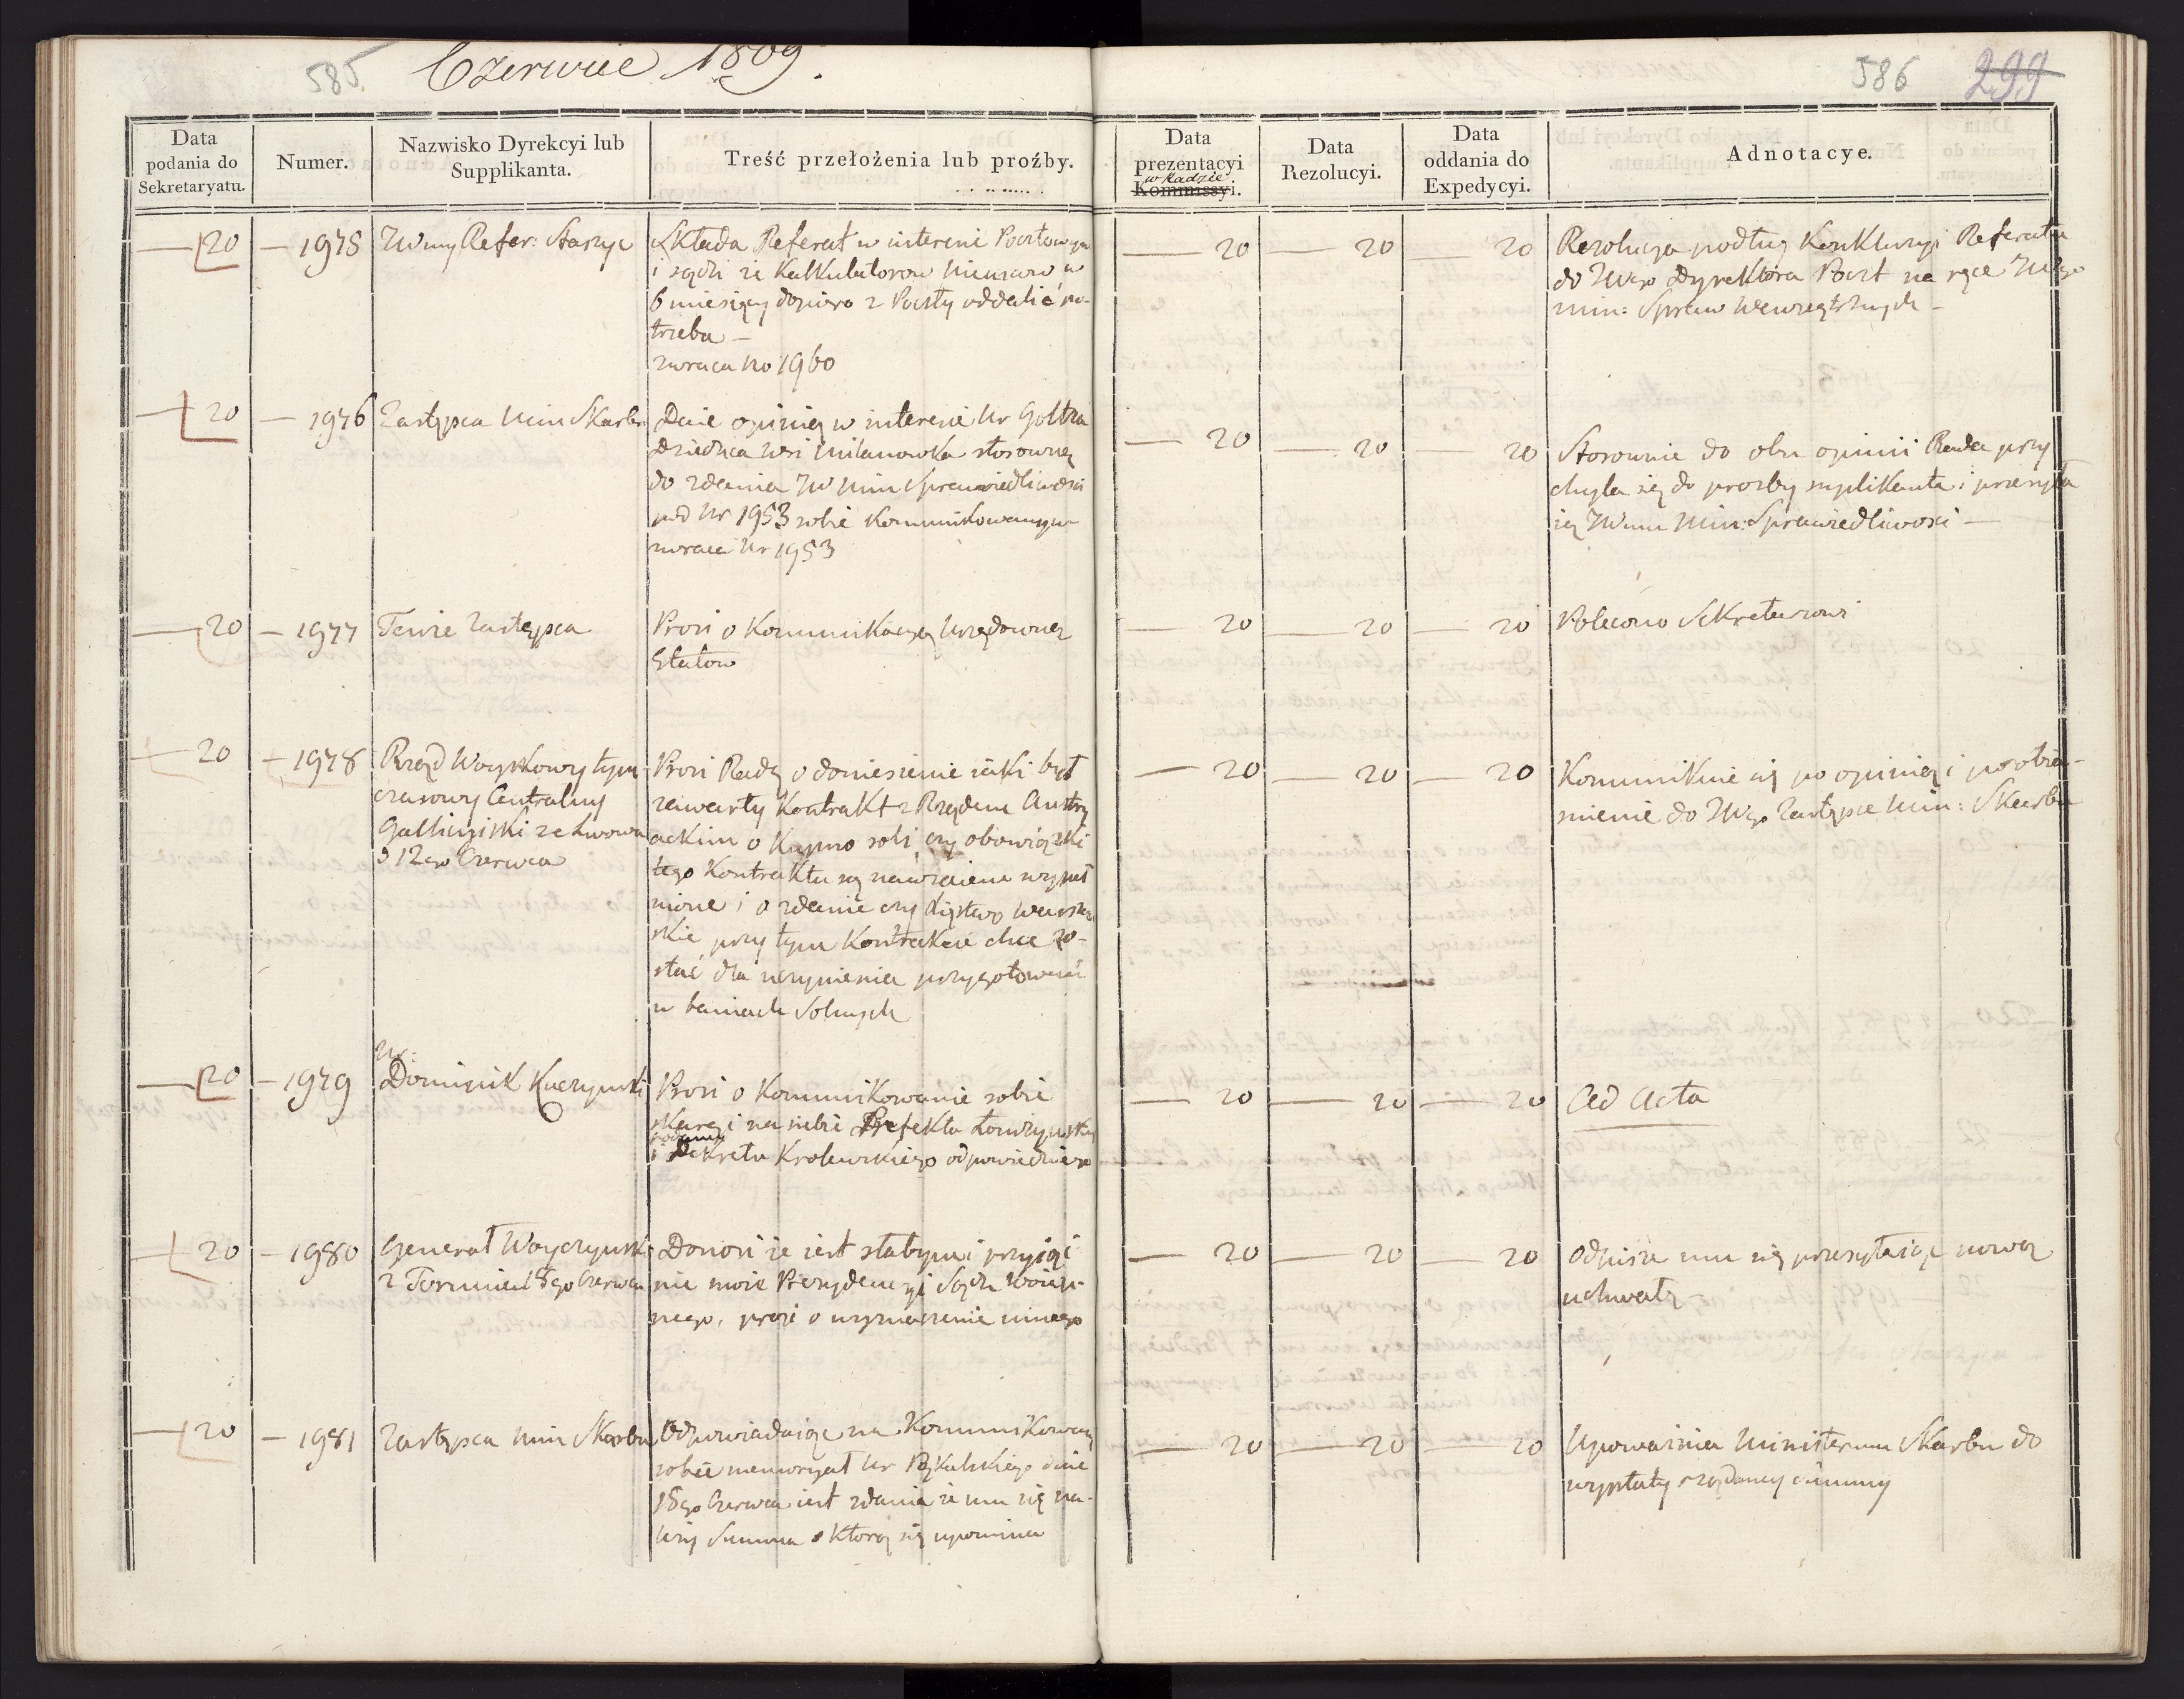 585. Czerwiec 1809.
586 299
Data podania do Sekretaryatu.
Numer.
Nazwisko Dyrekcyi lub Supplikanta.
Treść przełożenia lub proźby.
Data prezentacyi w Radzie Kommissyi.
Data Rezolucyi.
Data oddania do Expedycyi.
Adnotacye.
— 20 — 1975 JWny Refer: Staszyc
Składa Referat w interesie Pocztowym
i sądzi że Kalkulatorow Niemcow w
6 miesięcy dopiero z Poczty oddalić po-
trzeba —
zwraca No 1960
— 20 — 20 — 20
Rezolucya podług Konkluzyi Referatu
do JWgo Dyrektora Poczt na ręce JWgo
min: Spraw Wewnętrznych —
— 20 — 1976 Zastępca Min Skarbu
Daie opinię w interesie Ur Goltza
Dziedzica Wsi Milanowka stosowną
do zdania JW Min Sprawiedliwości
pod Nr 1953 sobie kommunikowanym
zwraca Nr 1953
— 20 — 20 — 20
Stosownie do obu opinii Rada przy
chyla się do prozby suplikanta i przesyła
ią JWmu Min: Sprawiedliwosci —
— 20 — 1977 Tenże Zastępca
Prosi o Kommunikacyą Urzędowną
Etatow
— 20 — 20 — 20
Polecono Sekretarzowi
— 20 — 1978 Rząd Woyskowy tym
czasowy Centralny
Gallicyiski ze Lwowa
d 12go Czerwca
Prosi Radę o doniesienie iaki był
zawarty Kontrakt z Rządem Austry
ackim o Kupno soli, czy obowiązki
tego Kontraktu są nawzaiem wypeł
nione i o zdanie czy Xięstwo Warszaw
skie przy tym Kontrakcie chce zo-
stać dla uczynienia przygotowań
w baniach Solnych
— 20 — 20 — 20
Kommunikuie się po opinią i po obia-
snienie do JWgo Zastępce Min: Skarbu
— 20 — 1979 Ur:
Dominik Kuczynski
Prosi o Kommunikowanie sobie
skargi na siebie Prefekta Łomżynskiego
podaney
i Dekretu Krolewskiego odpowiedniego
— 20 — 20 — 20
Ad Acta
— 20 — 1980 Generał Woyczynski
z Torunia d 18go Czerwca
Donosi że iest słabym i przyiąć
nie może Prezydencyi Sądu Woien-
nego, prosi o wyznaczenie innego
— 20 — 20 — 20
Odpisze mu się przesyłaiąc nową
uchwałę —
— 20 — 1981 Zastępca Min Skarbu
Odpowiadaiąc na Kommunikowany
sobie memoryał Ur dnie
18go Czerwca iest zdania że mu się na-
leży Summa o ktorą się upomina
— 20 — 20 — 20
Upoważnia Ministerium Skarbu do
wypłaty rządaney summy